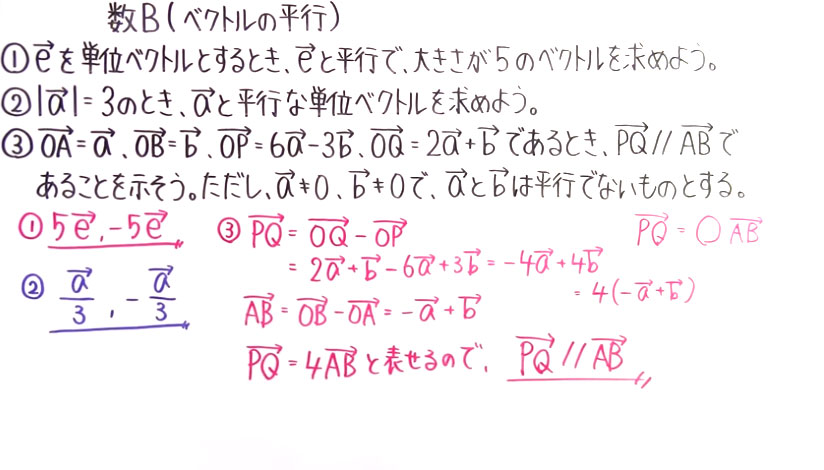 数B(ベクトルの平行)
① e→を単位ベクトルとするとき、e→と平行で、大きさが5のベクトルを求めよう。
② |a→|=3のとき、a→と平行な単位ベクトルを求めよう。
③ OA→=a→、OB→=b→、OP→=6a→-3b→、OQ→=2a→+b→であるとき、PQ→//AB→で
あることを示そう。ただし、a→≠0、b→≠0で、a→とb→は平行でないものとする。
① 5e→, -5e→
② a→/3, -a→/3
③ PQ→=OQ→-OP→
=2a→+b→-6a→+3b→=-4a→+4b→
=4(-a→+b→)
AB→=OB→-OA→=-a→+b→
PQ→=4AB→と表せるので、PQ→//AB→
PQ→=○AB→